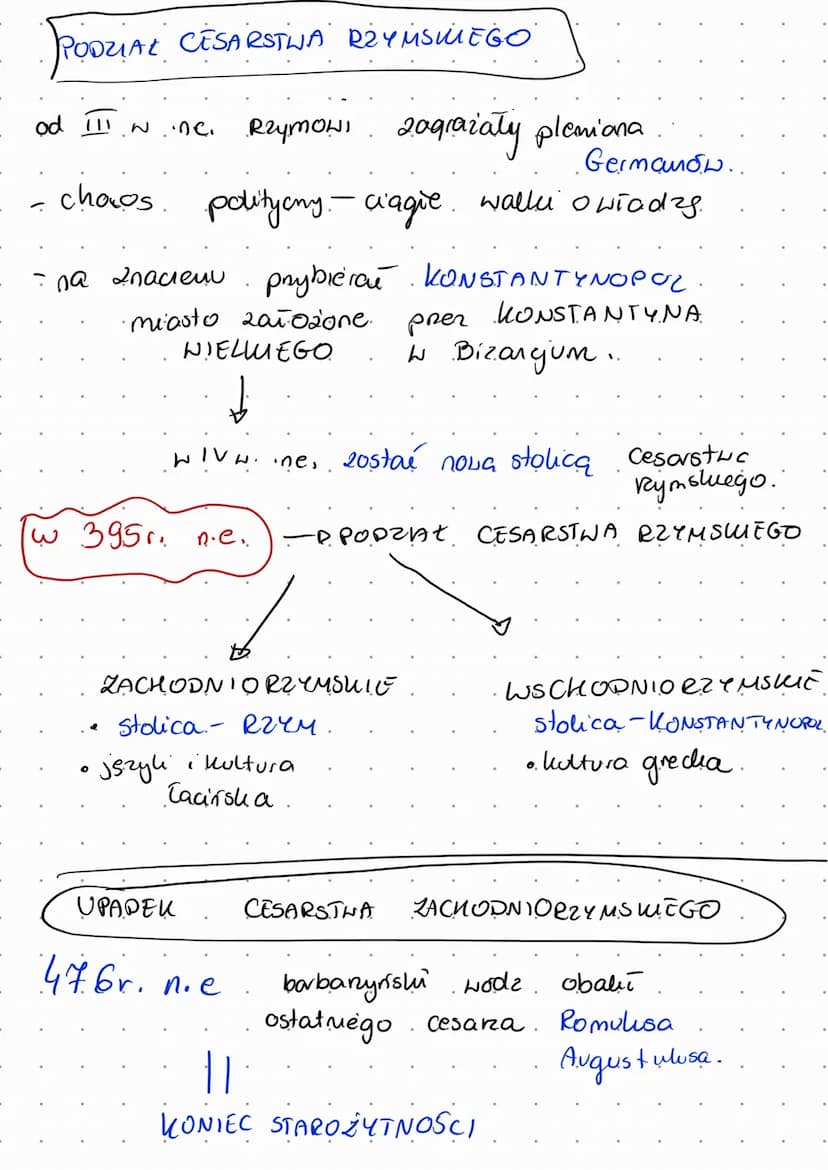 PODZIAŁ CESARSTWA RZYMSKIEGO
od III w n.e. Rzymowi zagrażały plemiona
Germanów.
- chaos polityczny – ciągłe walki o władzę
- na znaczeniu przybierał KONSTANTYNOPOL
miasto założone przez KONSTANTYNA
WIELKIEGO w Bizancjum.
w IV w. n.e. został nową stolicą cesarstwa
rzymskiego.
w 395r. n.e. → PODZIAŁ CESARSTWA RZYMSKIEGO
ZACHODNIORZYMSKIE
• stolica - RZYM
• język i kultura
łacińska
WSCHODNIORZYMSKIE
stolica - KONSTANTYNOPOL
• kultura grecka
UPADEK CESARSTWA ZACHODNIORZYMSKIEGO
476r. n.e barbarzyński wódz obalił
ostatniego cesarza Romulusa
Augustulusa.
KONIEC STAROŻYTNOŚCI